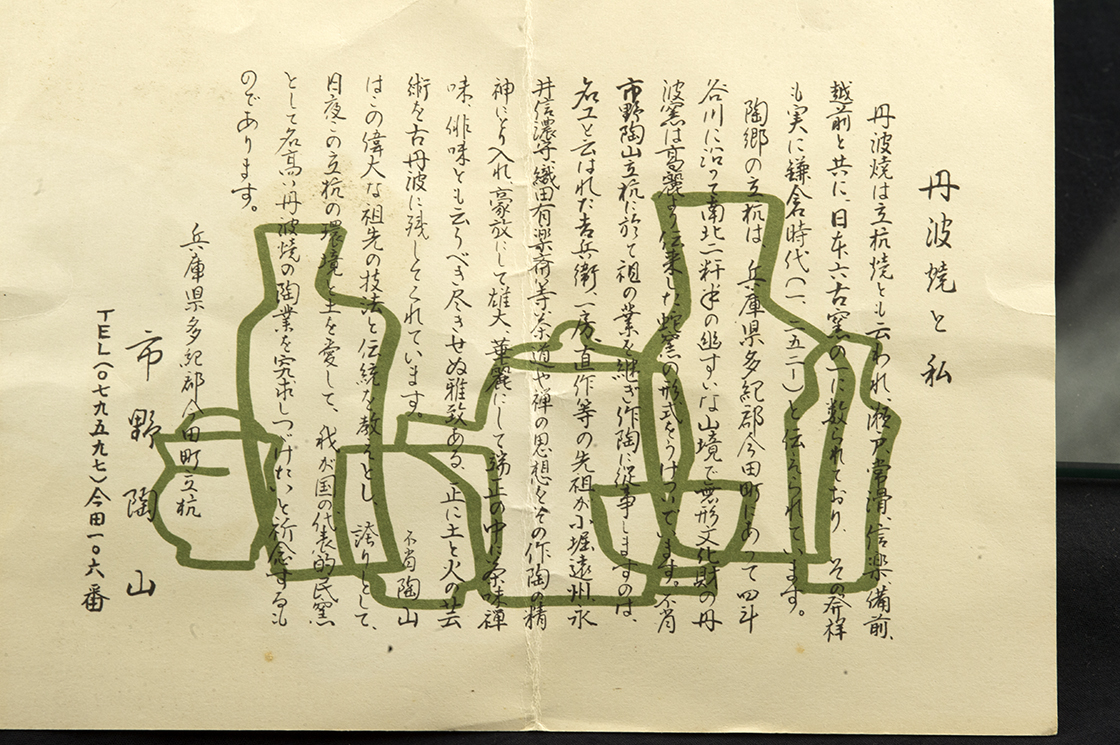 丹波焼と私
丹波焼は立杭焼とも云われ、瀬戸、常滑、信楽、備前、
越前と共に、日本六古窯の一に数えられており、その発祥
も実に鎌倉時代(一、一五二―)と伝えられています。
陶郷の立杭は、兵庫県多紀郡今田町にあって四斗
谷川に沿って南北二粁半の幽すいな山境で無形文化財の丹
波窯は高麗より伝来した蛇窯の形式をうけついでいます。不肖
市野陶山立杭に於て祖の業を継ぎ作陶に従事しますのは、
名工と云はれた吉兵衛、一房、直作等の先祖が小堀遠州、永
井信濃守、織田有楽斎等茶道や禅の思想をその作陶の精
神にとり入れ、豪放にして雄大、華麗にして端正の中に茶味禅
味、俳味とも云うべき尽きせぬ雅致ある、正に土と火の芸
術を古丹波に残してくれています。 不肖陶山
はこの偉大な祖先の技法と伝統を教えとし、誇りとして、
日夜この立杭の環境と土を愛して、我が国の代表的民窯
として名高い丹波焼の陶業を究求しつづけたいと祈念するも
のであります。
兵庫県多紀郡今田町立杭
市野陶山
TEL(〇七九五九七)今田一〇六番